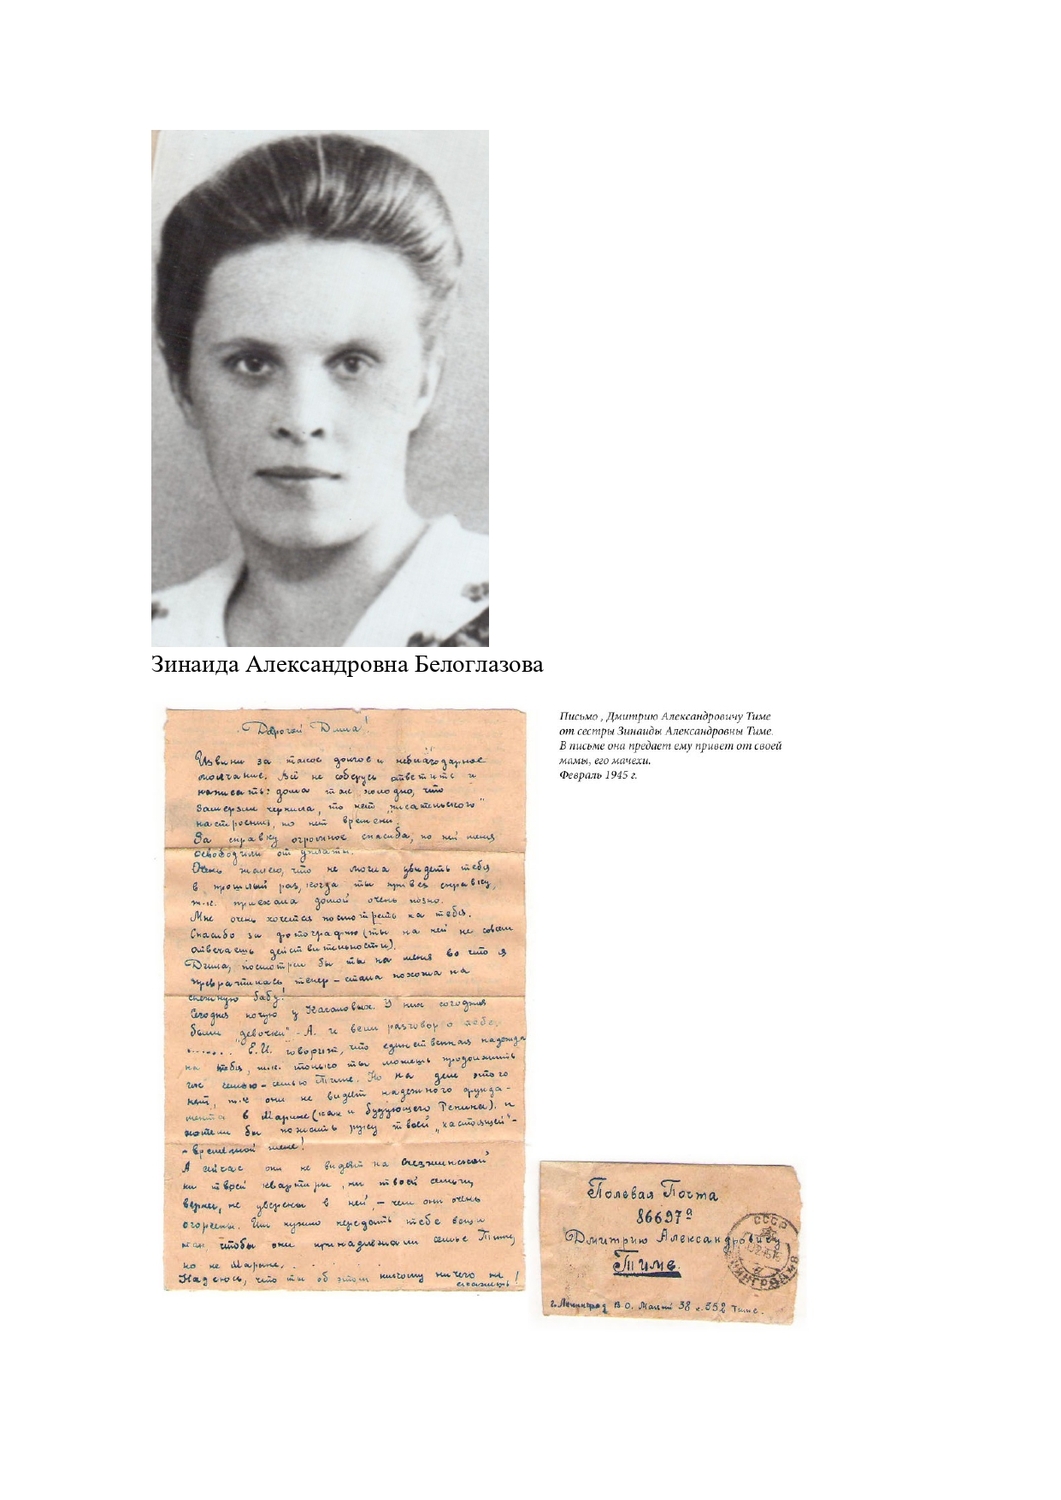 Зинаида Александровна Белоглазова
Письмо , Дмитрию Александровичу Тиме
от сестры Зинаиды Александровны Тиме.
В письме она предает ему привет от своей
мамы, его мачехи.
Февраль 1945 г.
Дорогой Дима!
Извини за такое долгое и неблагодарное
молчание. Всё не соберусь ответить и
написать: дома так холодно, что
замерзли чернила, то нет „писательского"
настроения, то нет времени.
За справку огромное спасибо, по ней меня
освободили от уплаты.
Очень жалею, что не могла увидеть тебя
в прошлый раз, когда ты привез справку,
т.к. приехала домой очень поздно.
Мне очень хочется посмотреть на тебя.
Спасибо за фотографию (ты на ней не совсем
отвечаешь действительности).
Дима, посмотрел бы ты на меня во что я
превратилась теперь – стала похожа на
снежную бабу!
Сегодня ночую у Касановых. У них сегодня
были „девочки" - А. и вели разговор о
....... Е.И. говорит, что единственная надежда
на тебя, т.к. только ты можешь продолжить
семью – семью Тиме. Но на деле этого
нет, т.к они не видят надежного фунда-
мента в Марине (как и будующего Репина). и
хотели бы пожать руку твоей „настоящей" -
- временной жене!
А сейчас они не видят на
ни твоей квартиры, ни твоей семьи,
вернее, не уверены в ней, – чем они очень
огорчены. Им нужно передать тебе вещи
чтобы они принадлежали семье Тиме,
но не Марине. . . . . .
Надеюсь, что ты об этом никому ничего не
скажешь!
Полевая Почта
86697
Дмитрию Александровичу
Тиме.
СССР
ЛЕНИНГРАД
г. Ленинград В О. Малый 38 к. 552 Тиме.